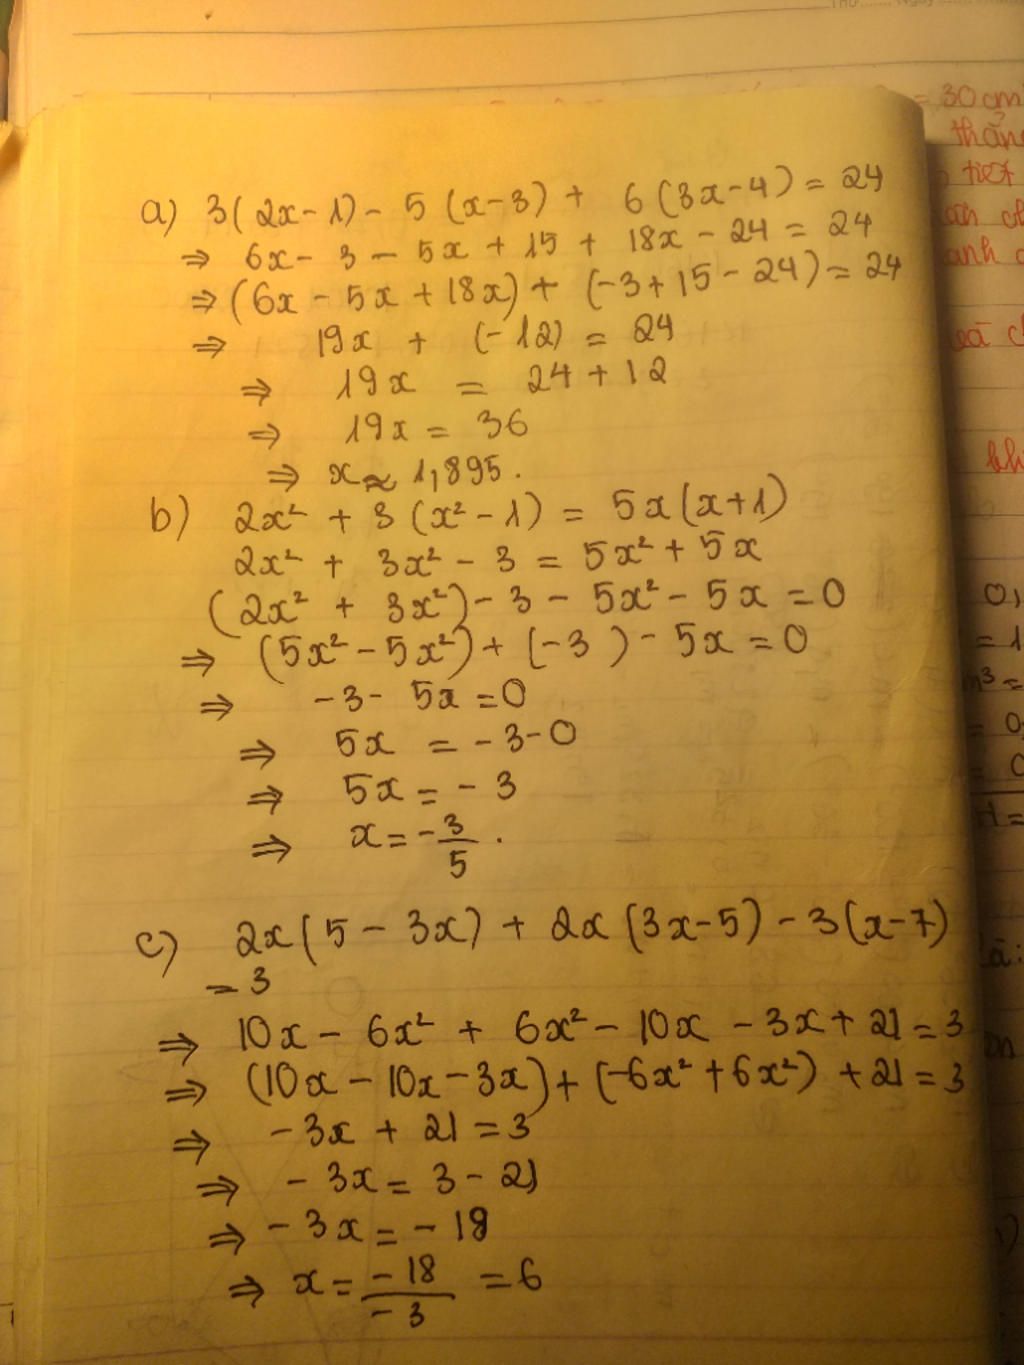 Thứ ....... Ngày .......
= 30cm
a) 3(2x-1) - 5(x-3) + 6(3x-4) = 24
⇒ 6x - 3 - 5x + 15 + 18x - 24 = 24
⇒ (6x - 5x + 18x) + (-3+15-24) = 24
⇒ 19x + (-12) = 24
⇒ 19x = 24 + 12
⇒ 19x = 36
⇒ x ≈ 1,895.
b) 2x² + 3(x²-1) = 5x(x+1)
2x² + 3x² - 3 = 5x² + 5x
(2x² + 3x²) - 3 - 5x² - 5x = 0
⇒ (5x² - 5x²) + (-3) - 5x = 0
⇒ -3 - 5x = 0
⇒ 5x = -3-0
⇒ 5x = -3
⇒ x = -3/5.
c) 2x(5-3x) + 2x(3x-5) - 3(x-7)
= 3
⇒ 10x - 6x² + 6x² - 10x - 3x + 21 = 3
⇒ (10x - 10x - 3x) + (-6x² + 6x²) + 21 = 3
⇒ -3x + 21 = 3
⇒ -3x = 3 - 21
⇒ -3x = -18
⇒ x = -18/-3 = 6